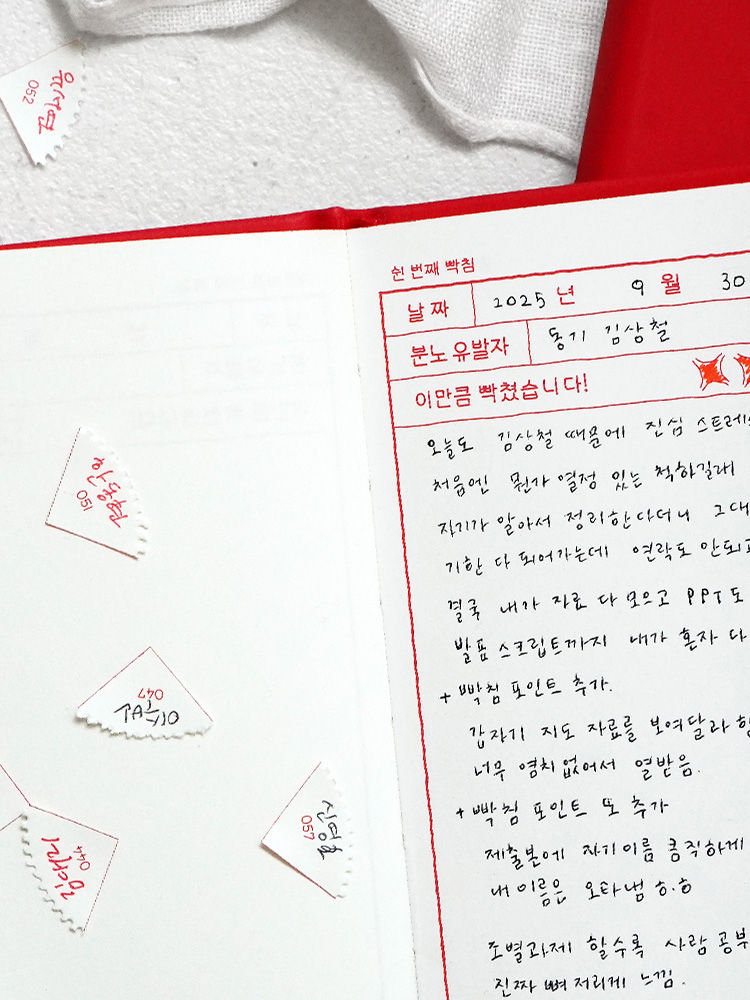 유선연
052
쉰 번째 빡침
날짜 2025 년 9 월 30
분노 유발자 동기 김상철
이만큼 빡쳤습니다!
오늘도 김상철 때문에 진심 스트레스
처음엔 뭔가 열정 있는 척하길래
자기가 알아서 정리한다더니 그대
기한 다 되어가는데 연락도 안되고
결국 내가 자료 다 모으고 PPT도
발표 스크립트까지 내가 혼자 다
+ 빡침 포인트 추가.
갑자기 지도 자료를 보여달라 함
너무 염치없어서 열받음.
+ 빡침 포인트 또 추가
제출본에 자기이름 큼직하게
내 이름은 오타냄 ㅎ.ㅎ
조별과제 할수록 사람 공부
진짜 뼈저리게 느낌.
150
047
김대리
044
신영호
057